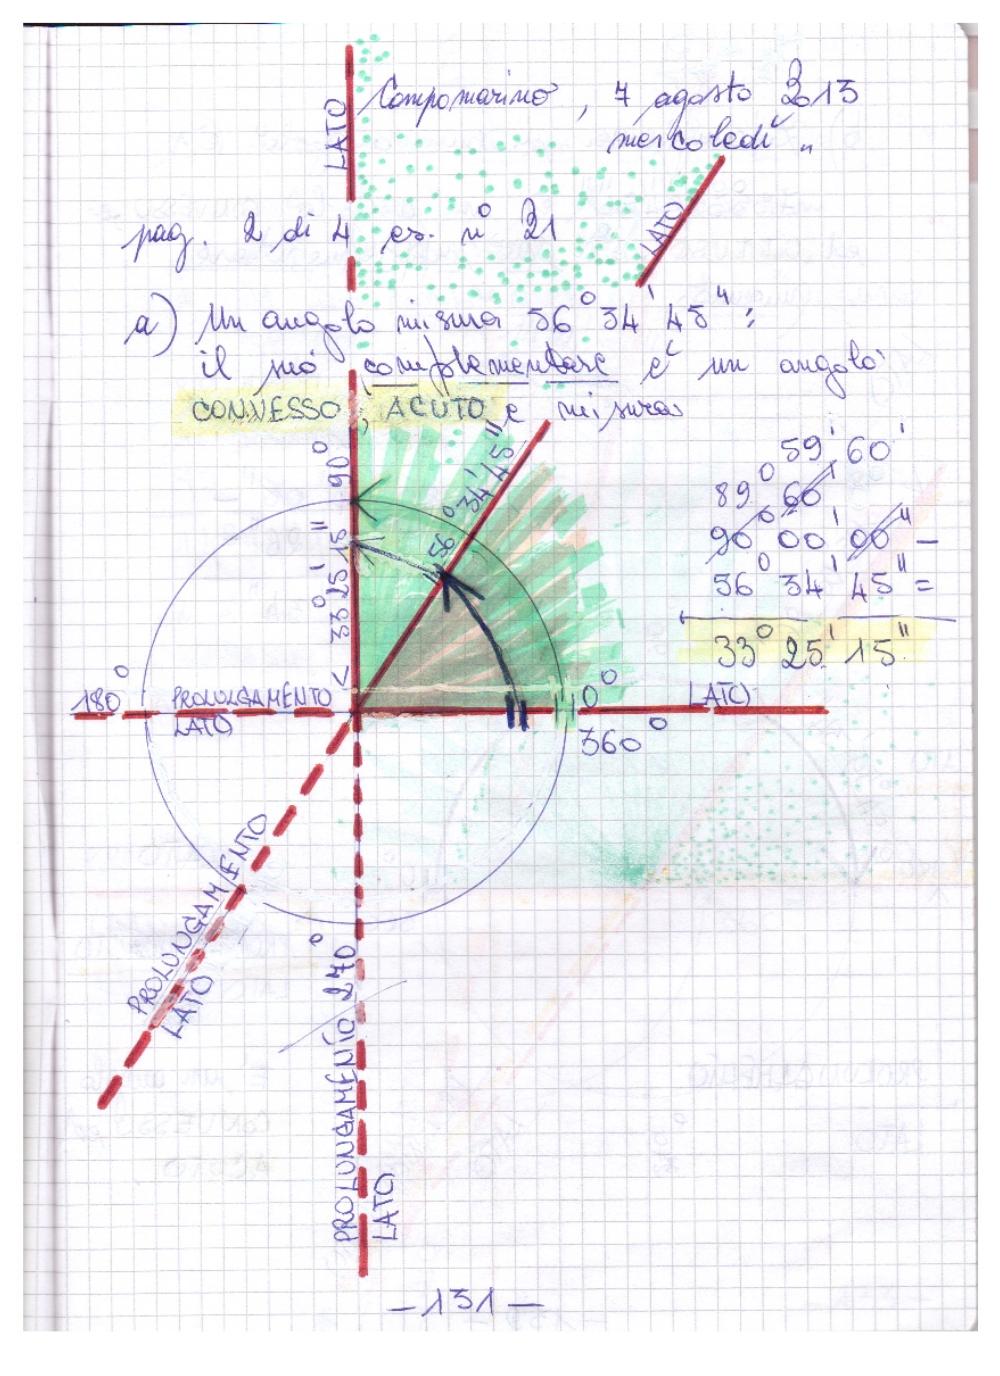 LATO
Campomarino, 7 agosto 2013
mercoledì „
LATO
pag. 2 di 4 es. n° 21
a) Un angolo misura 56° 34' 45":
il suo complementare è un angolo
CONVESSO, ACUTO e misura
59' 60"
89° 60'
90° 00' 00" –
56° 34' 45" =
33° 25' 15"
90°
56° 34' 45"
33° 25' 15"
180°
PROLUNGAMENTO
LATO
0°
LATO
360°
PROLUNGAMENTO
LATO
PROLUNGAMENTO 270°
LATO
– 131 –